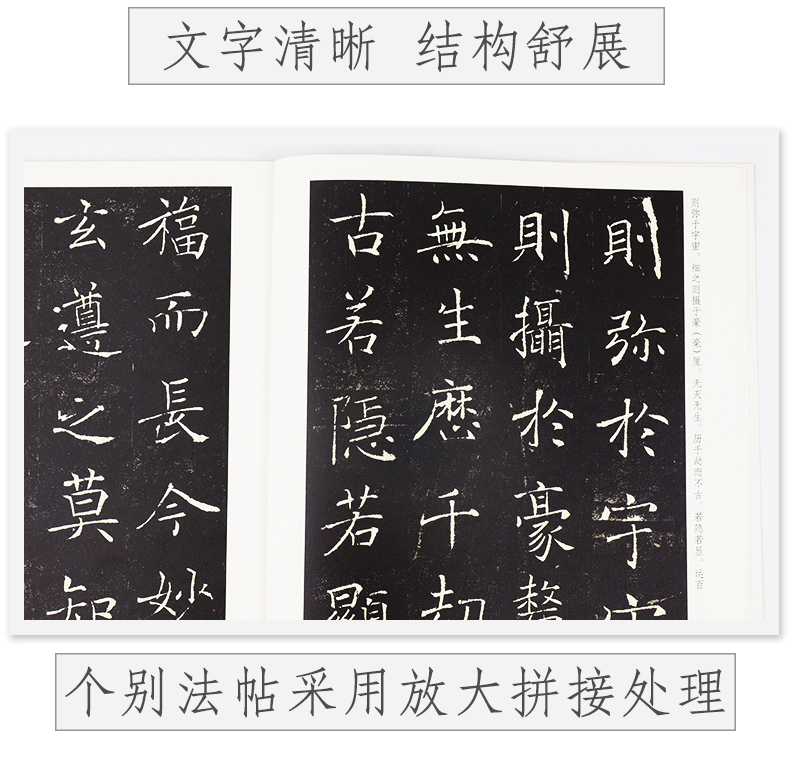 文字清晰 结构舒展
则弥于宇宙。细之则摄于豪（毫）厘。无灭无生。历千劫而不古。若隐若显。运百
則弥於宇宙
則攝於豪
無生歷千劫
古若隱若顯
福而長今妙
玄遵之莫知
个别法帖采用放大拼接处理